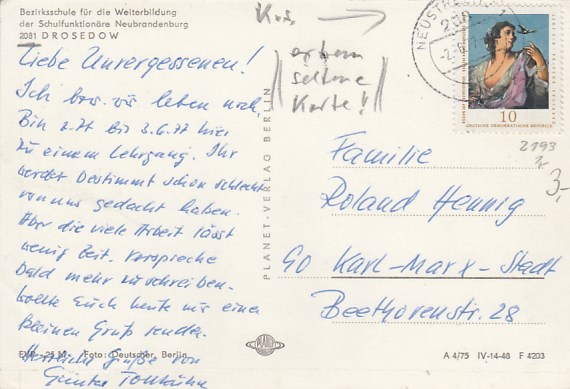 Bezirksschule für die Weiterbildung
der Schulfunktionäre Neubrandenburg
2081 DROSEDOW
Liebe Unvergessenen!
Ich bzw. wir leben noch,
Bin 2.71 bis 3.6.77 hier
zu einem Lehrgang. Ihr
werdet bestimmt schon schlecht
von uns gedacht haben.
Aber die viele Arbeit lässt
wenig Zeit. Verspreche
bald mehr zu schreiben.
wollte Euch heute nur einen
kleinen Gruß senden.
Herzliche Grüße von
Günter
EVP -,25 M Foto: Deutscher, Berlin
PLANET-VERLAG BERLIN
extrem
seltene
Karte!
10
DEUTSCHE DEMOKRATISCHE REPUBLIK
2193
3,-
Familie
Roland Hennig
90 Karl-Marx-Stadt
Beethovenstr. 28
PLANET
A 4/75 IV-14-48 F 4203